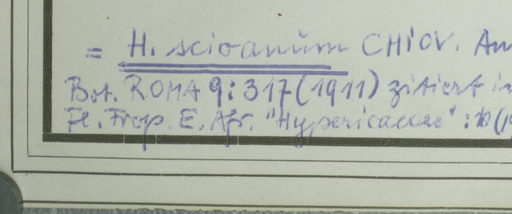 = H. scioanum CHIOV. An
Bot. ROMA 9: 317 (1911) zitiert in
Fl. Trop. E. Afr. "Hypericaceae" : 10 (1